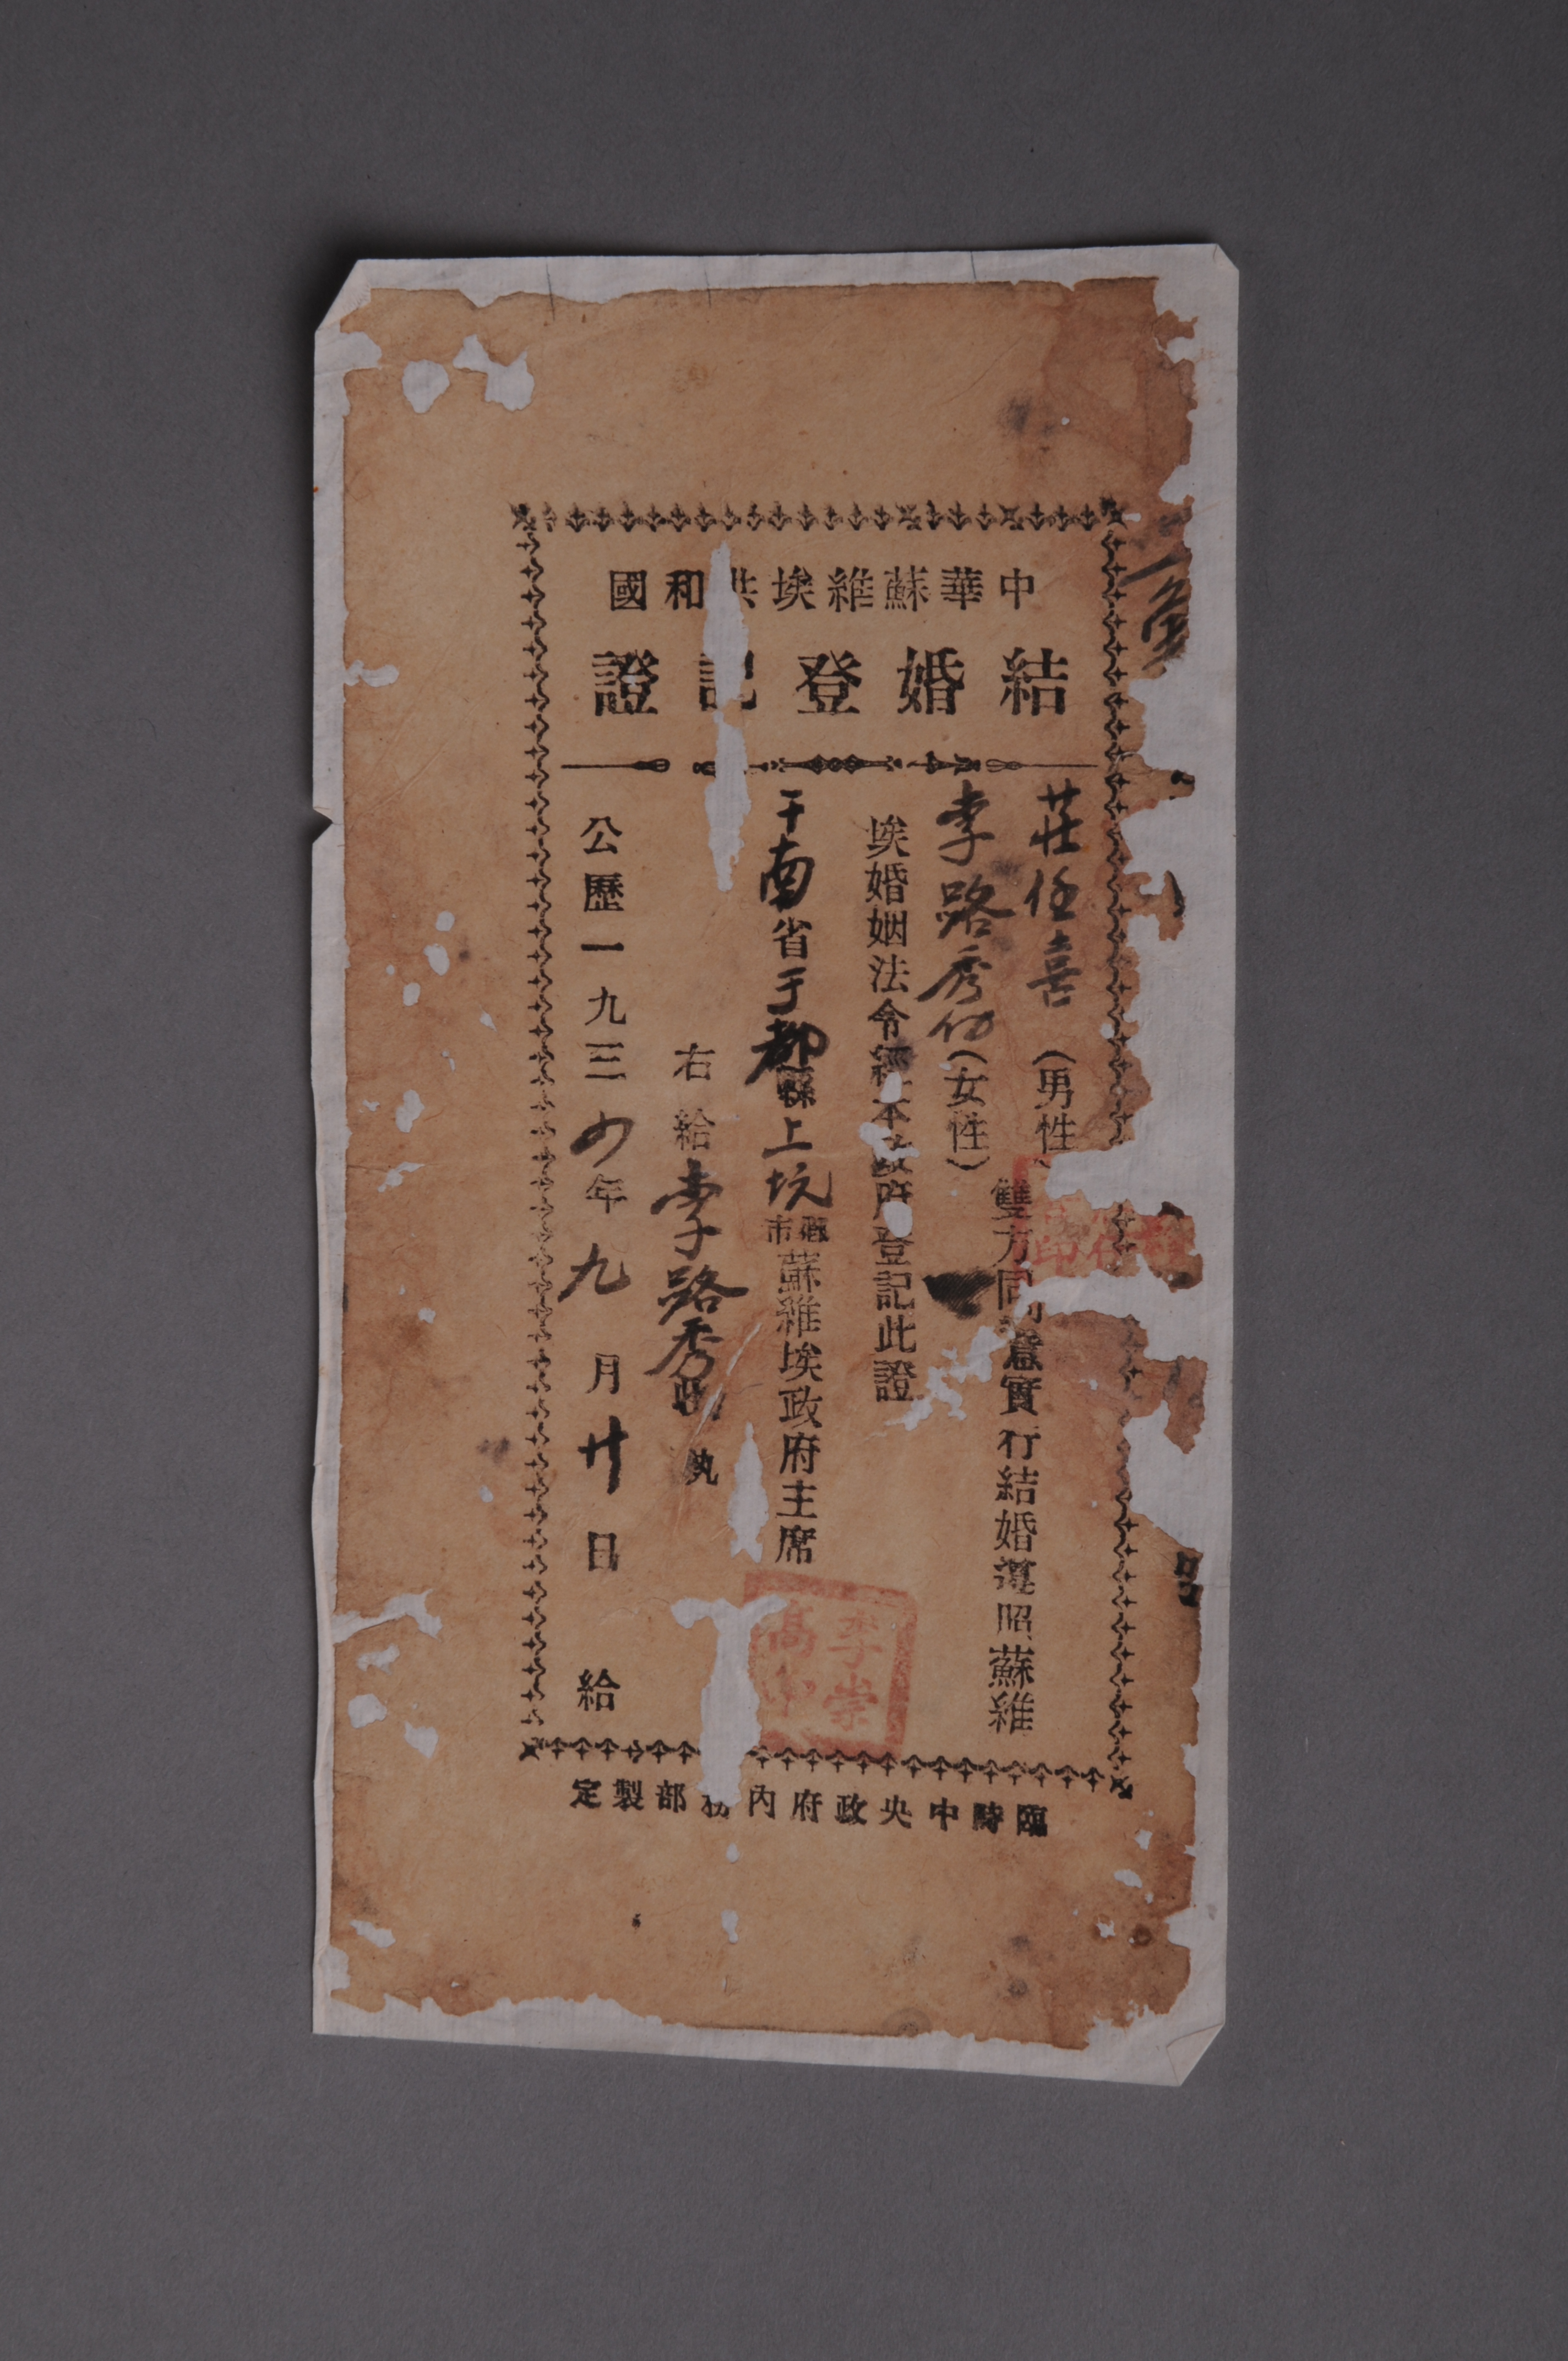 中華蘇維埃共和國
結婚登記證
莊任喜(男性)
李路秀(女性)
雙方同意實行結婚遵照蘇維
埃婚姻法令經本政府登記此證
干南省于都縣上坑鄉市蘇維埃政府主席
李崇高
右給李路秀 執
公歷一九三四年九月廿日給
臨時中央政府內務部製定